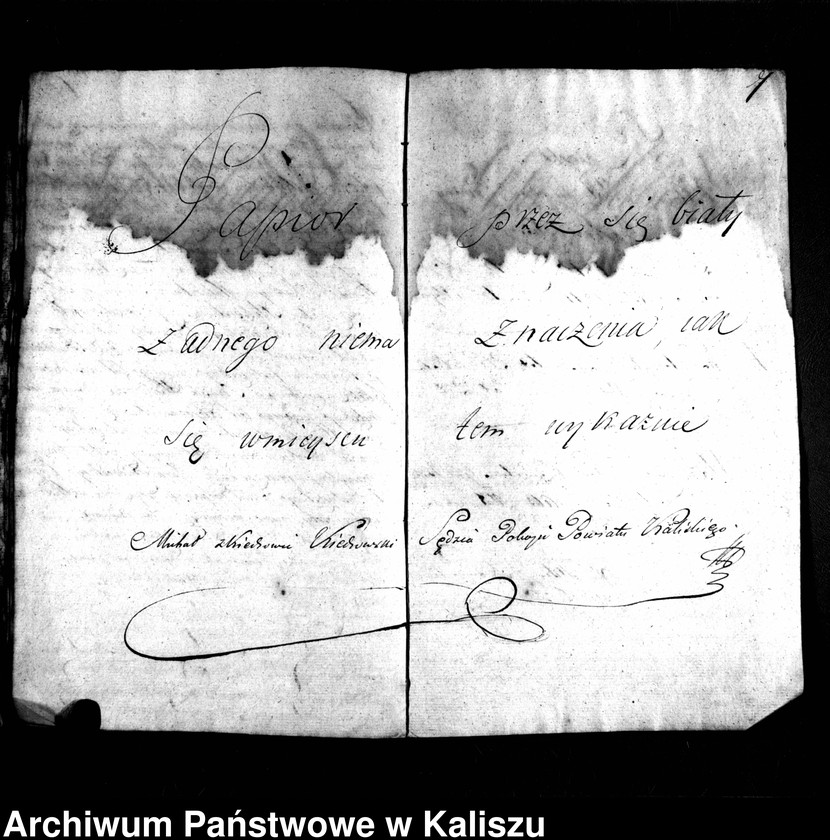 7
Papior przez się biały
Żadnego niema Znaczenia, iak
się wmieyscu tem wykaznie
Michał zKiedrowa Kiedrowski Sędzia Pokoju Powiatu Kaliskiego.
Archiwum Państwowe w Kaliszu